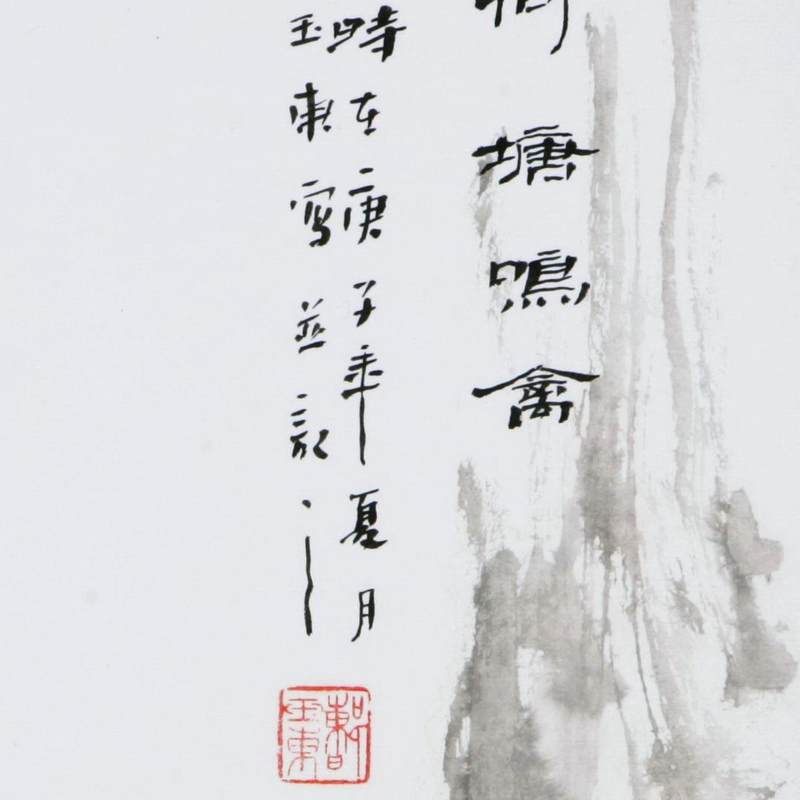 荷塘鳴禽
時在庚子年夏月
玉東寫並記之
玉東